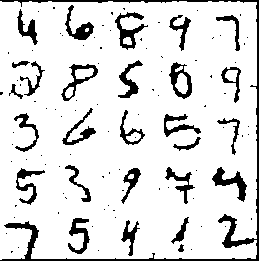 4 6 8 9 7
2 8 5 8 9
3 6 6 5 7
5 3 9 7 4
7 5 4 1 2